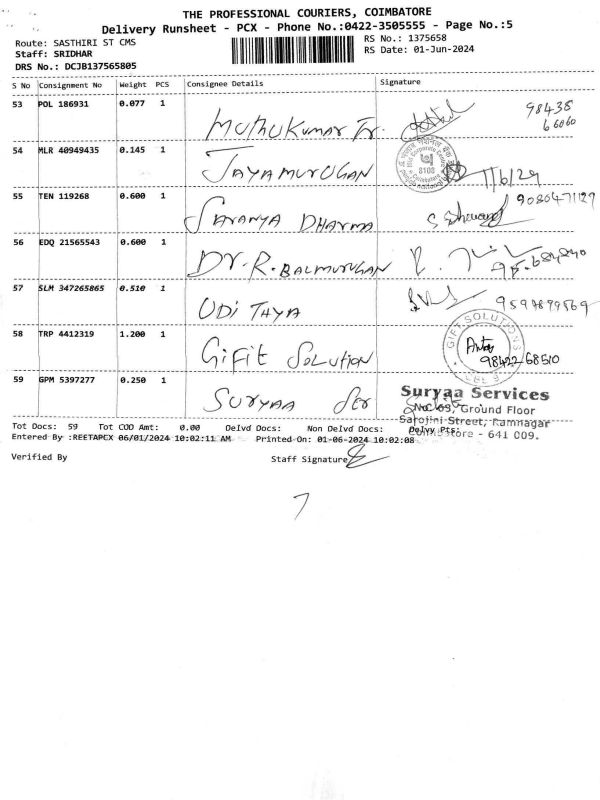 THE PROFESSIONAL COURIERS, COIMBATORE
Delivery Runsheet - PCX - Phone No.:0422-3505555 - Page No.:5
Route: SASTHIRI ST CMS
RS No.: 1375658
Staff: SRIDHAR
RS Date: 01-Jun-2024
DRS No.: DCJB137565805
S No Consignment No Weight PCS Consignee Details Signature
53 POL 186931 0.077 1 Muthukumar Tr.
54 MLR 40949435 0.145 1 JAYAMURUGAN
8108
55 TEN 119268 0.600 1 SARANYA DHARMA
56 EDQ 21565543 0.600 1 Dr. R. BALMURUGAN
57 SLM 347265865 0.510 1 UDi THYA
58 TRP 4412319 1.200 1 GiFit SOLUTION
GIFT SOLUTIONS
98422 68510
59 GPM 5397277 0.250 1 SURYAA Ser
Suryaa Services
Ground Floor
Sarojini Street, Ramnagar
Coimbatore - 641 009.
Tot Docs: 59 Tot COD Amt: 0.00 Delvd Docs: Non Delvd Docs: Delvy Pts:
Entered By :REETAPCX 06/01/2024 10:02:11 AM Printed On: 01-06-2024 10:02:08
Verified By Staff Signature